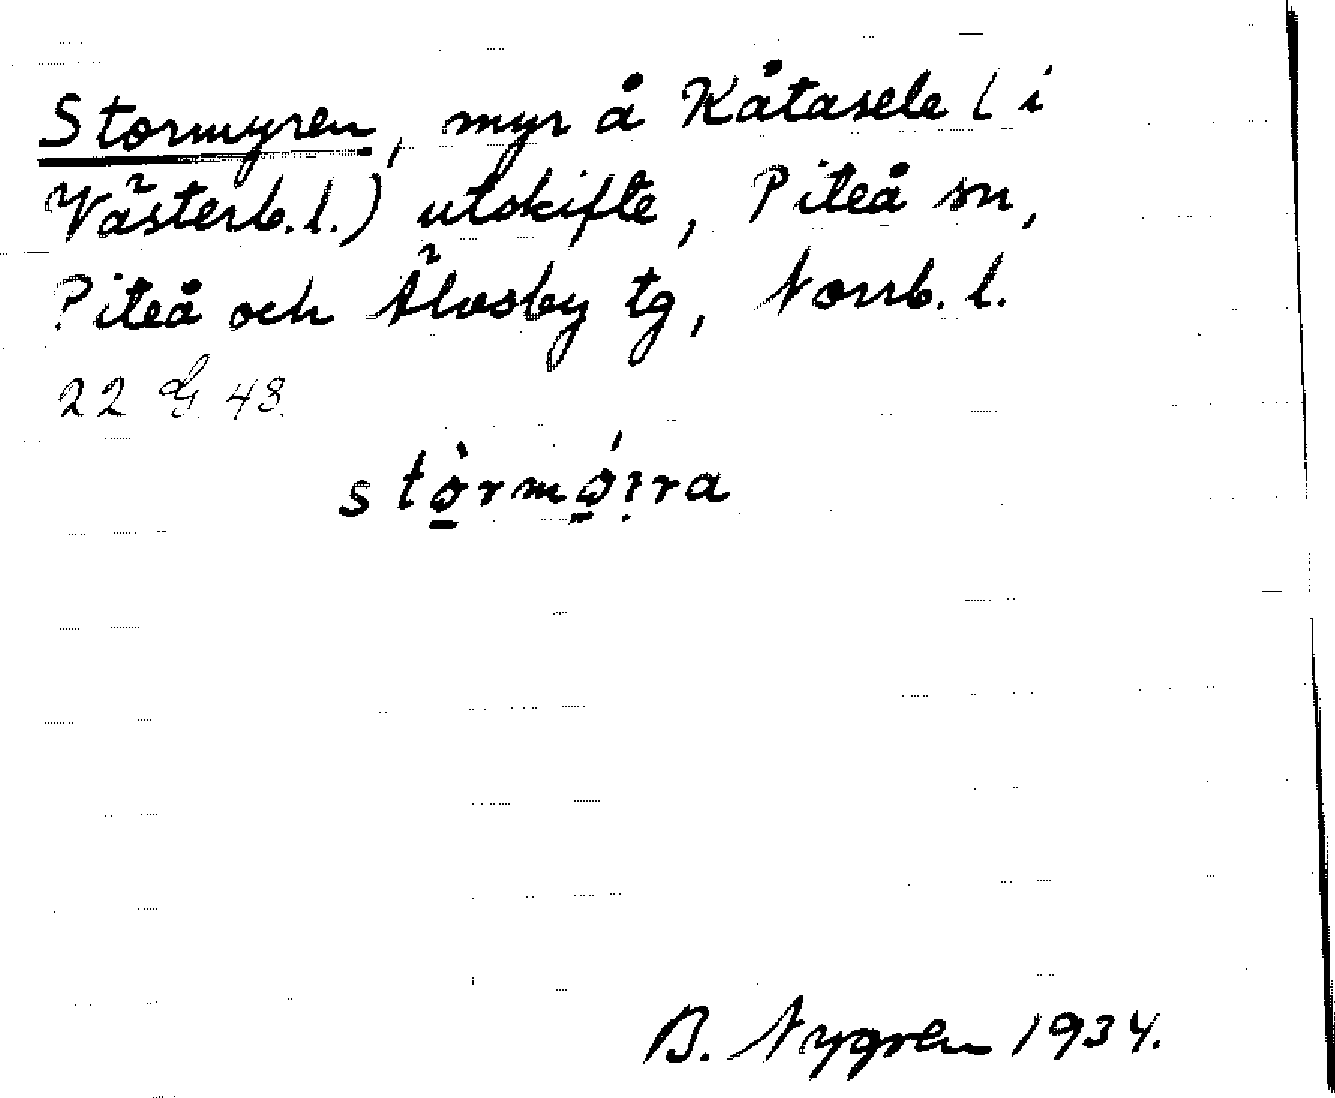 Stormyren, myr å Kåtasele (i
Västerb.l.) utskifte, Piteå sn,
Piteå och Älvsby tg, Norrb. l.
22 G 48
stò̲rmǿ̲ɩra
B. Nygren 1934.